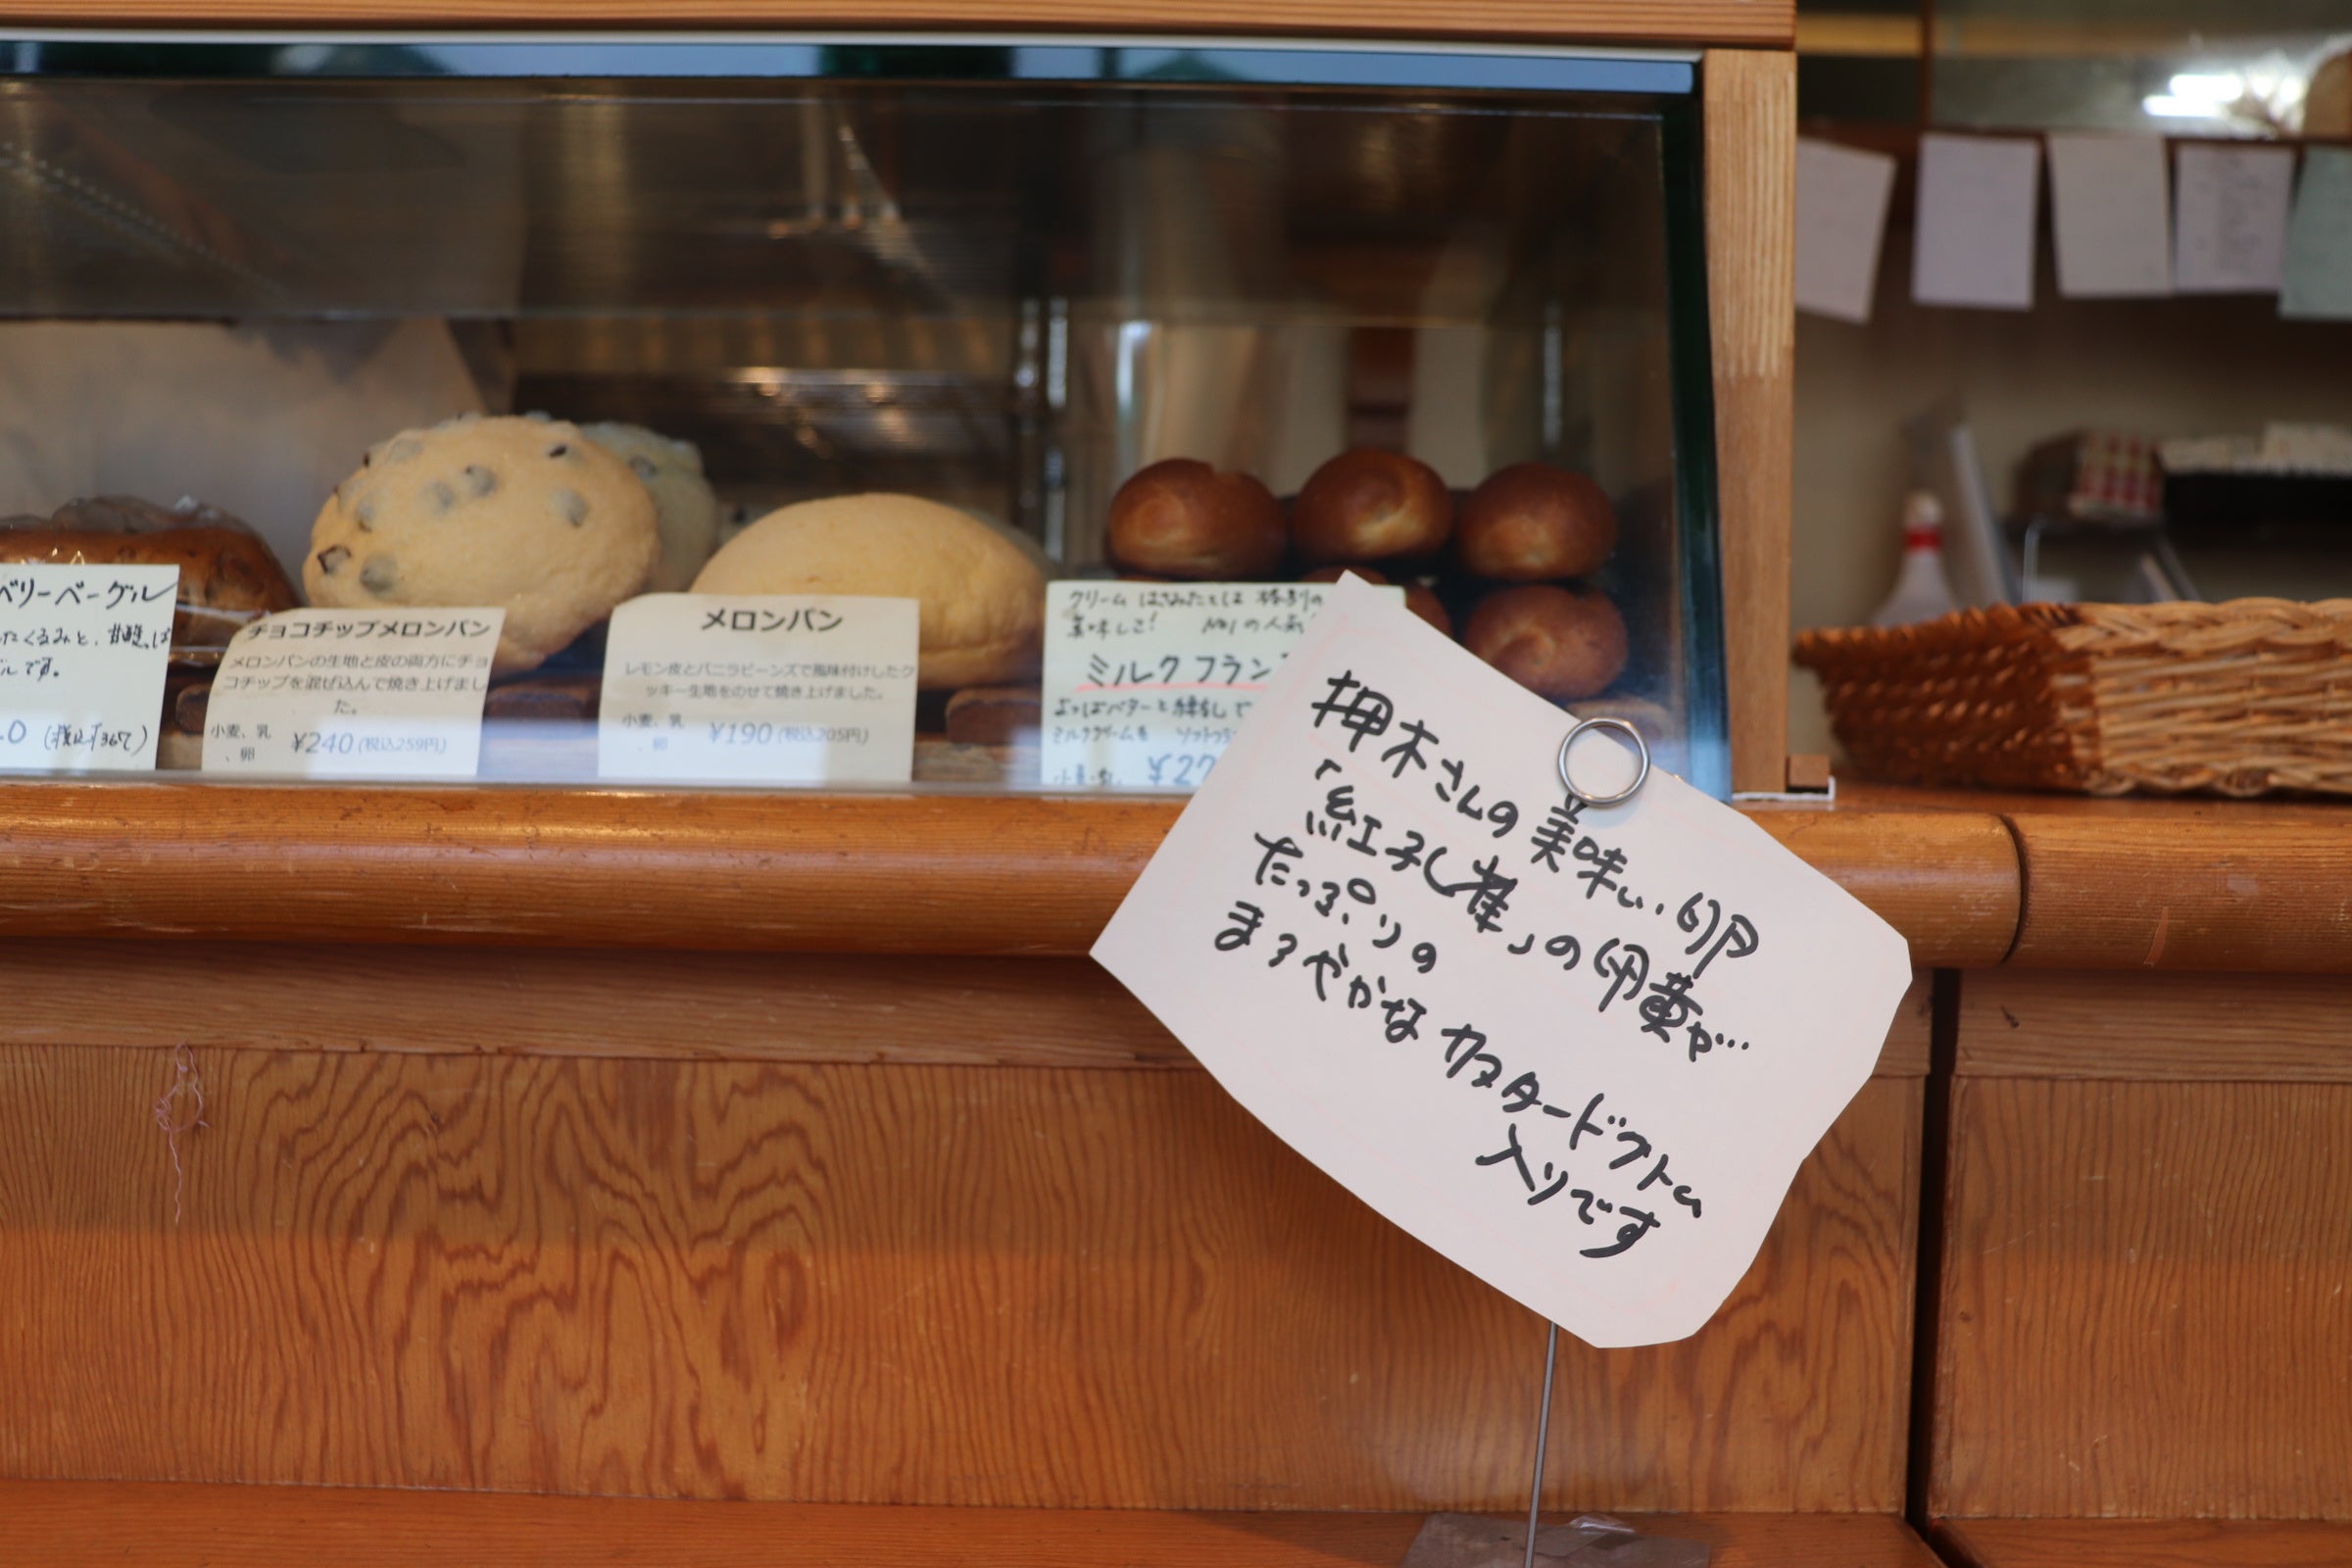 ベリーベーグル
たくるみと、甘酸っぱ
ルです。
0 (税込¥367)
チョコチップメロンパン
メロンパンの生地と皮の両方にチョ
コチップを混ぜ込んで焼き上げまし
た。
小麦、乳
、卵
¥240 (税込259円)
メロンパン
レモン皮とバニラビーンズで風味付けしたク
ッキー生地をのせて焼き上げました。
小麦、乳
、卵
¥190 (税込205円)
クリーム はさみたては 格別の
美味しさ! No1の人気
ミルクフラン
ミルククリームを
小麦・乳 ¥27
押木さんの美味しい卵
「紅孔雀」の卵黄が…
たっぷりの
まろやかなカスタードクリーム
入りです